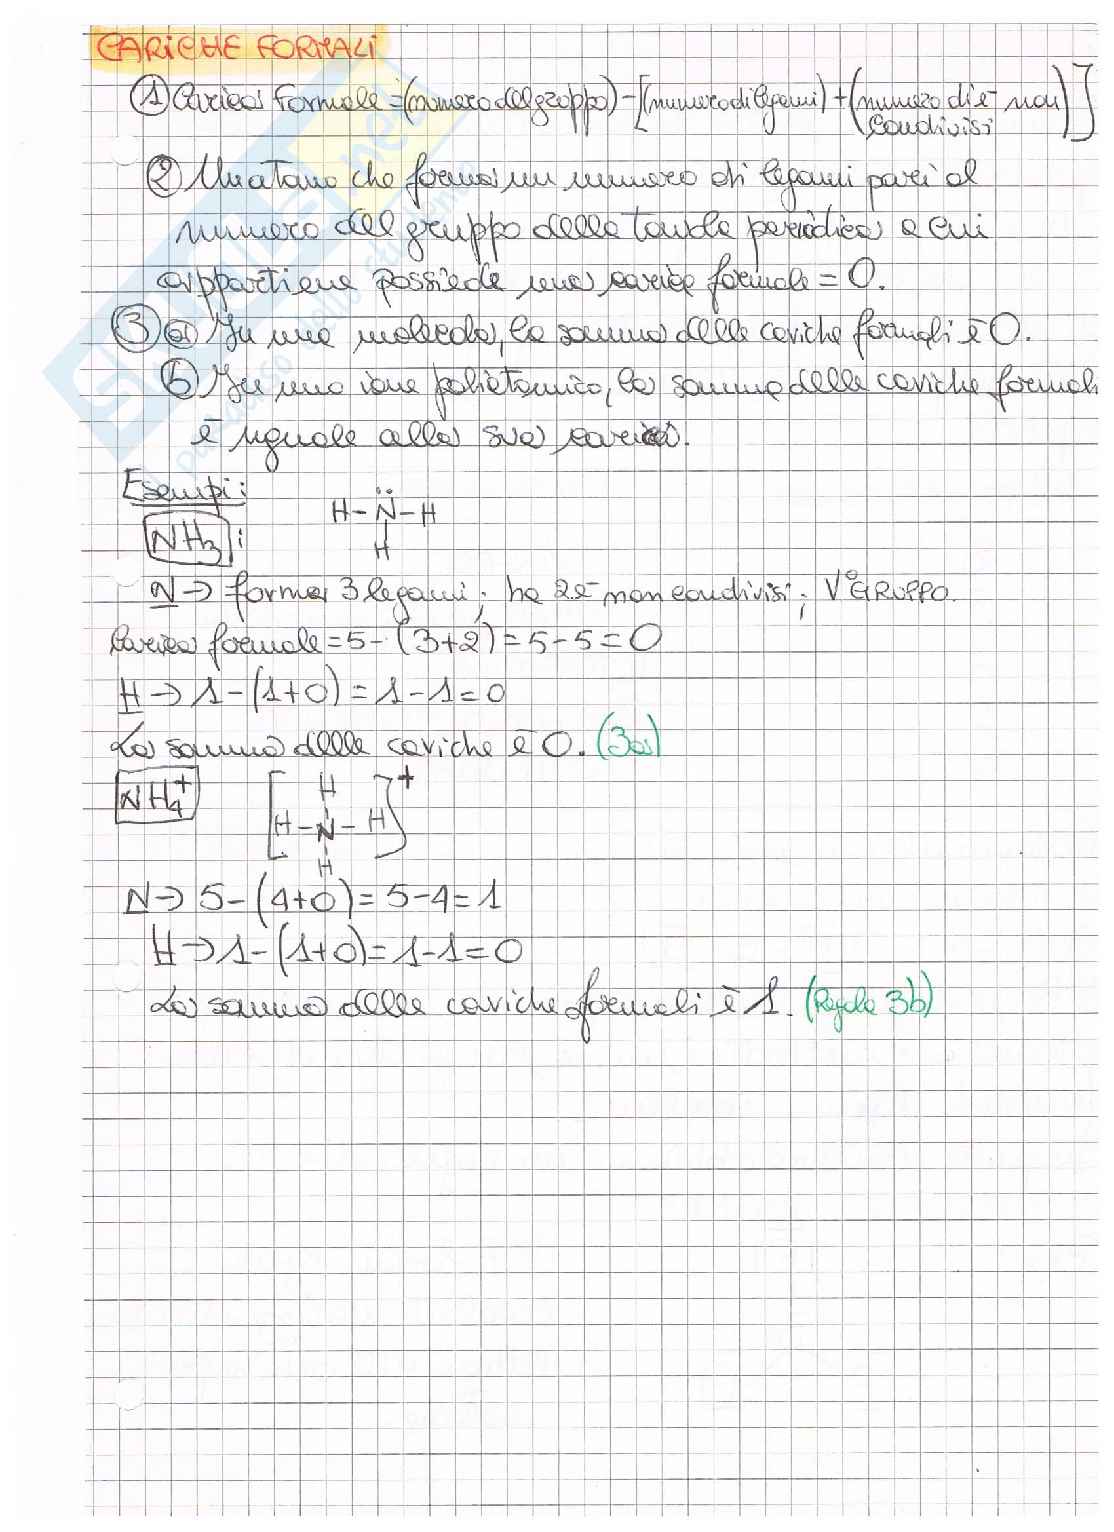 CARICHE FORMALI
① Carica formale = (numero del gruppo) - [(numero di legami) + (numero di e⁻ non condivisi)]
② Un atomo che forma un numero di legami pari al
numero del gruppo della tavola periodica a cui
appartiene possiede una carica formale = 0.
③ ⓐ In una molecola, la somma delle cariche formali è 0.
ⓑ In uno ione poliatomico, la somma delle cariche formali
è uguale alla sua carica.
Esempi:
NH₃:
H-N̈-H
H
N → forma 3 legami; ha 2e⁻ non condivisi; V° GRUPPO.
Carica formale = 5 - (3+2) = 5-5 = 0
H → 1-(1+0) = 1-1 = 0
La somma delle cariche è 0. (3a)
NH₄⁺
[H-N-H]⁺
H
H
N → 5-(4+0) = 5-4 = 1
H → 1-(1+0) = 1-1 = 0
La somma delle cariche formali è 1. (Regola 3b)